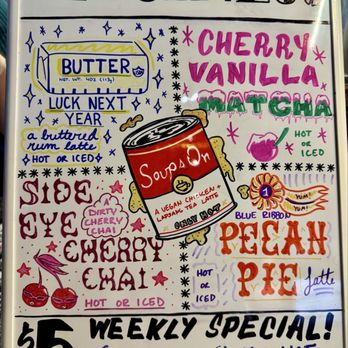 BUTTER
NET. WT. 4OZ (113g)
LUCK NEXT
YEAR
a buttered
rum latte
HOT OR ICED
CHERRY
VANILLA
MATCHA
HOT OR
ICED
Soups On
A VEGAN CHICKEN +
LAPSANG TEA LATTE
SIDE
EYE
A
DIRTY
CHERRY
CHAI
CHERRY
CHAI
HOT OR ICED
1
YUM!
YUM!
BLUE RIBBON
PECAN
PIE
Latte
HOT
OR
ICED
$5 WEEKLY SPECIAL!